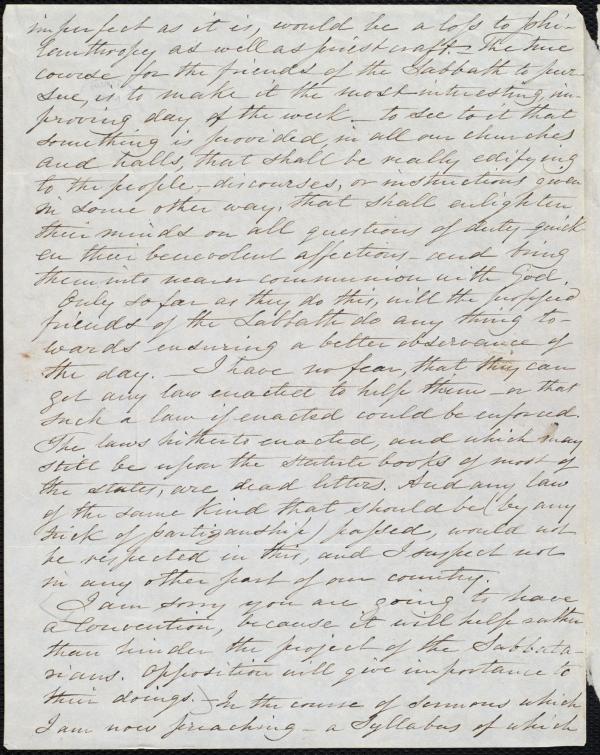 imperfect as it is, would be a loss to phi-
lanthropy as well as priestcraft. The true
course for the friends of the Sabbath to pur-
sue, is to make it the most interesting, im-
proving day of the week - to see to it that
something is provided, in all our churches
and halls, that shall be really edifying
to the people - discourses, or instructions given
in some other way, that shall enlighten
their minds on all questions of duty - quick
en their benevolent affections - and bring
them into nearer communion with God.
Only so far as they do this, will the professed
friends of the Sabbath do any thing to-
wards ensuring a better observance of
the day. - I have no fear, that they can
get any law enacted to help them - or that
such a law if enacted could be enforced.
The laws hitherto enacted, and which may
still be upon the statute books of most of
the states, are dead letters. And any law
of the same kind that should be (by any
trick of partizanship) passed, would not
be respected in this, and I suspect not
in any other part of our country.
(I am sorry you are going to have
a Convention, because it will help rather
than hinder the project of the Sabbata-
rians. Opposition will give importance to
their doings.) In the course of Sermons which
I am now preaching - a Syllabus of which